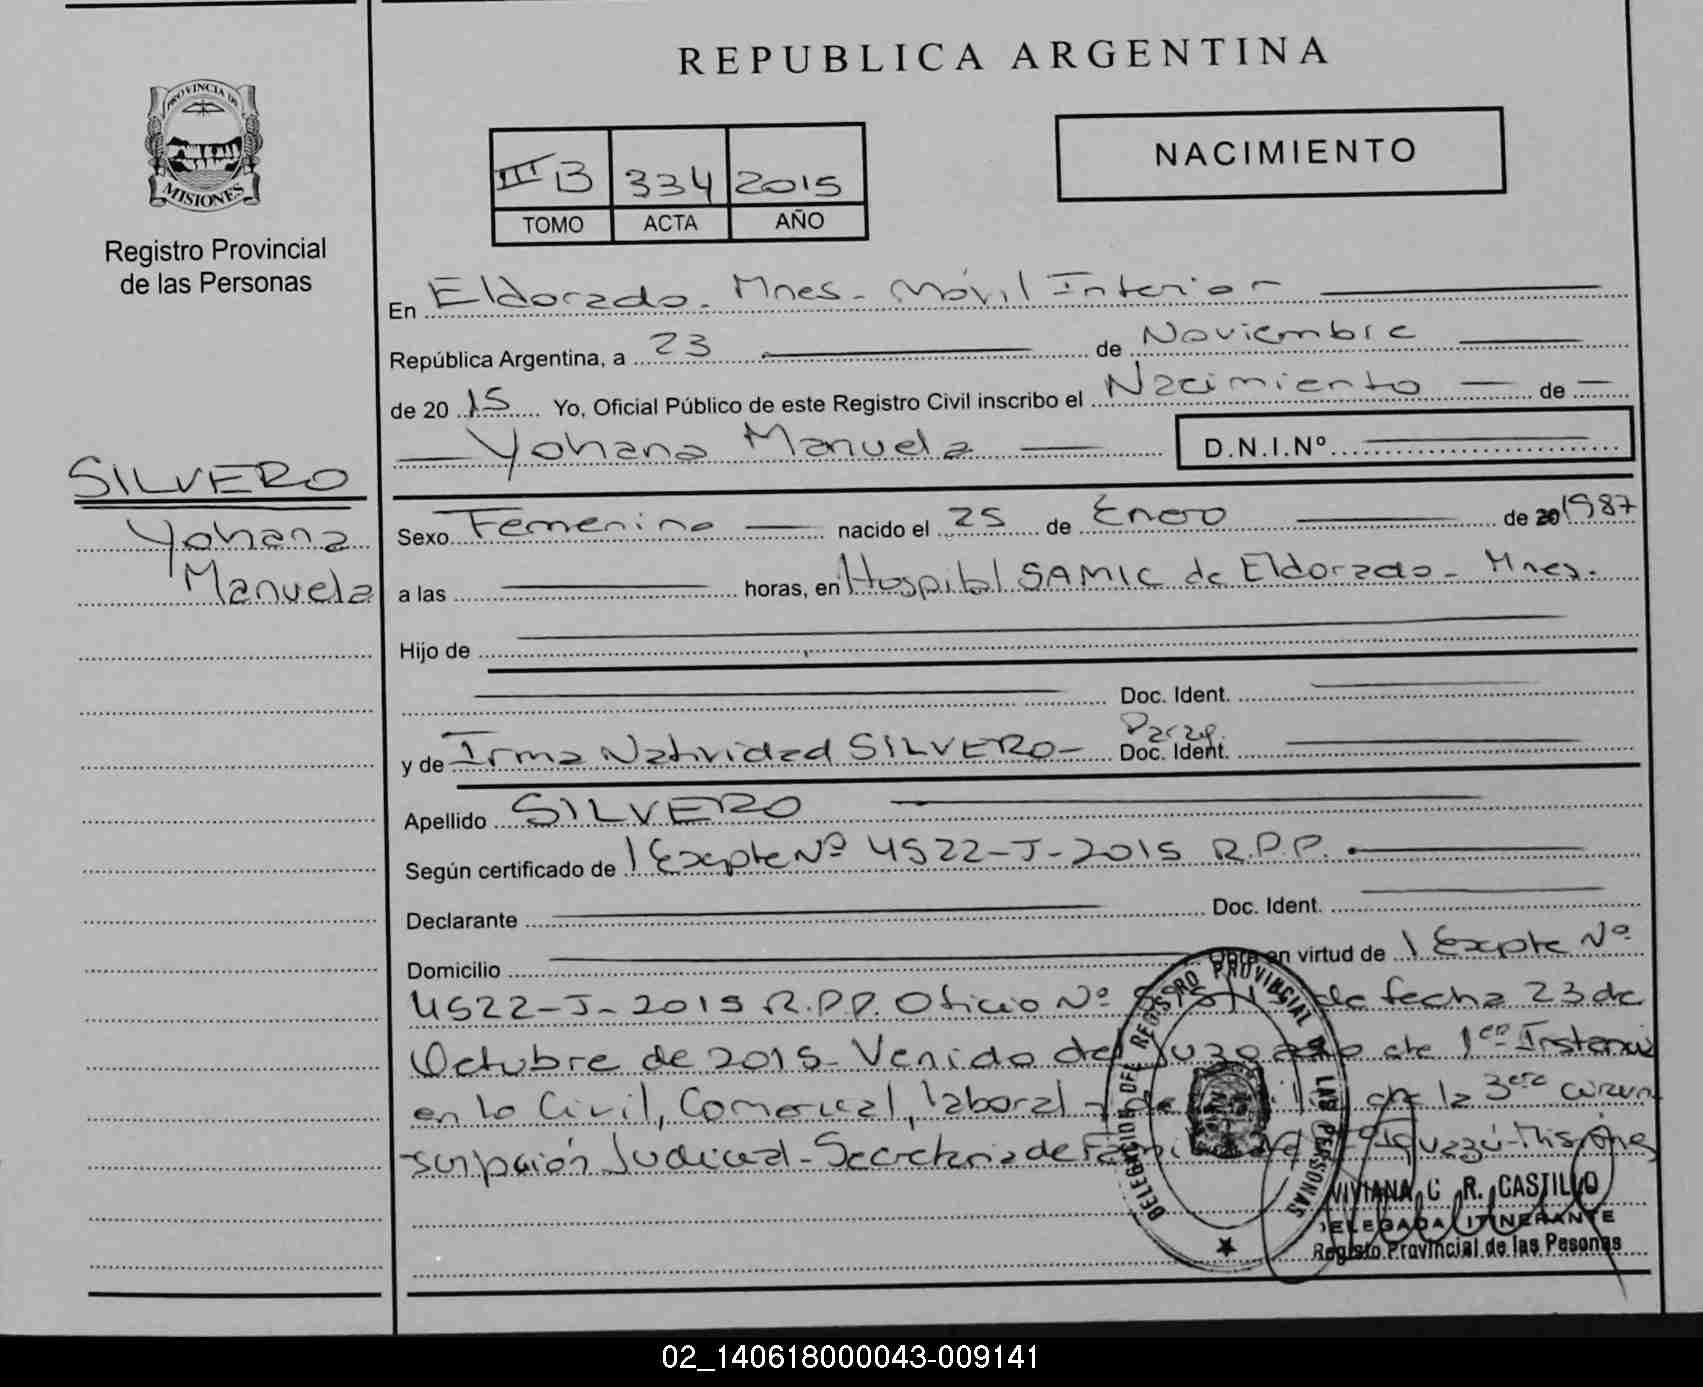 REPUBLICA ARGENTINA
PROVINCIA DE
MISIONES
Registro Provincial
de las Personas
III B 334 2015
TOMO ACTA AÑO
NACIMIENTO
En Eldorado. Mnes. Móvil Interior
República Argentina, a 23 de Noviembre
de 20 15 Yo, Oficial Público de este Registro Civil inscribo el Nacimiento de
Yohana Manuela D.N.I.Nº
SILVERO
Yohana
Manuela
Sexo Femenino nacido el 25 de Enero de 20 1987
a las horas, en Hospital SAMIC de Eldorado - Mnes.
Hijo de
Doc. Ident.
y de Irma Natividad SILVERO- Doc. Ident.
Apellido SILVERO
Según certificado de Expte Nº 4522-J-2015 R.P.P.
Declarante Doc. Ident.
Domicilio Obra en virtud de Expte Nº
4522-J-2015 R.P.P. Oficio Nº de fecha 23 de
Octubre de 2015- Venido del Juzgado de 1era Instancia
en lo Civil, Comercial, laboral y de de la 3era circun
scripción Judicial - Secretaria de Iguazú-Misiones
DELEGACION DEL REGISTRO PROVINCIAL DE LAS PERSONAS
VIVIANA C. R. CASTILLO
DELEGADA ITINERANTE
Registo Provincial de las Pesonas
02_140618000043-009141